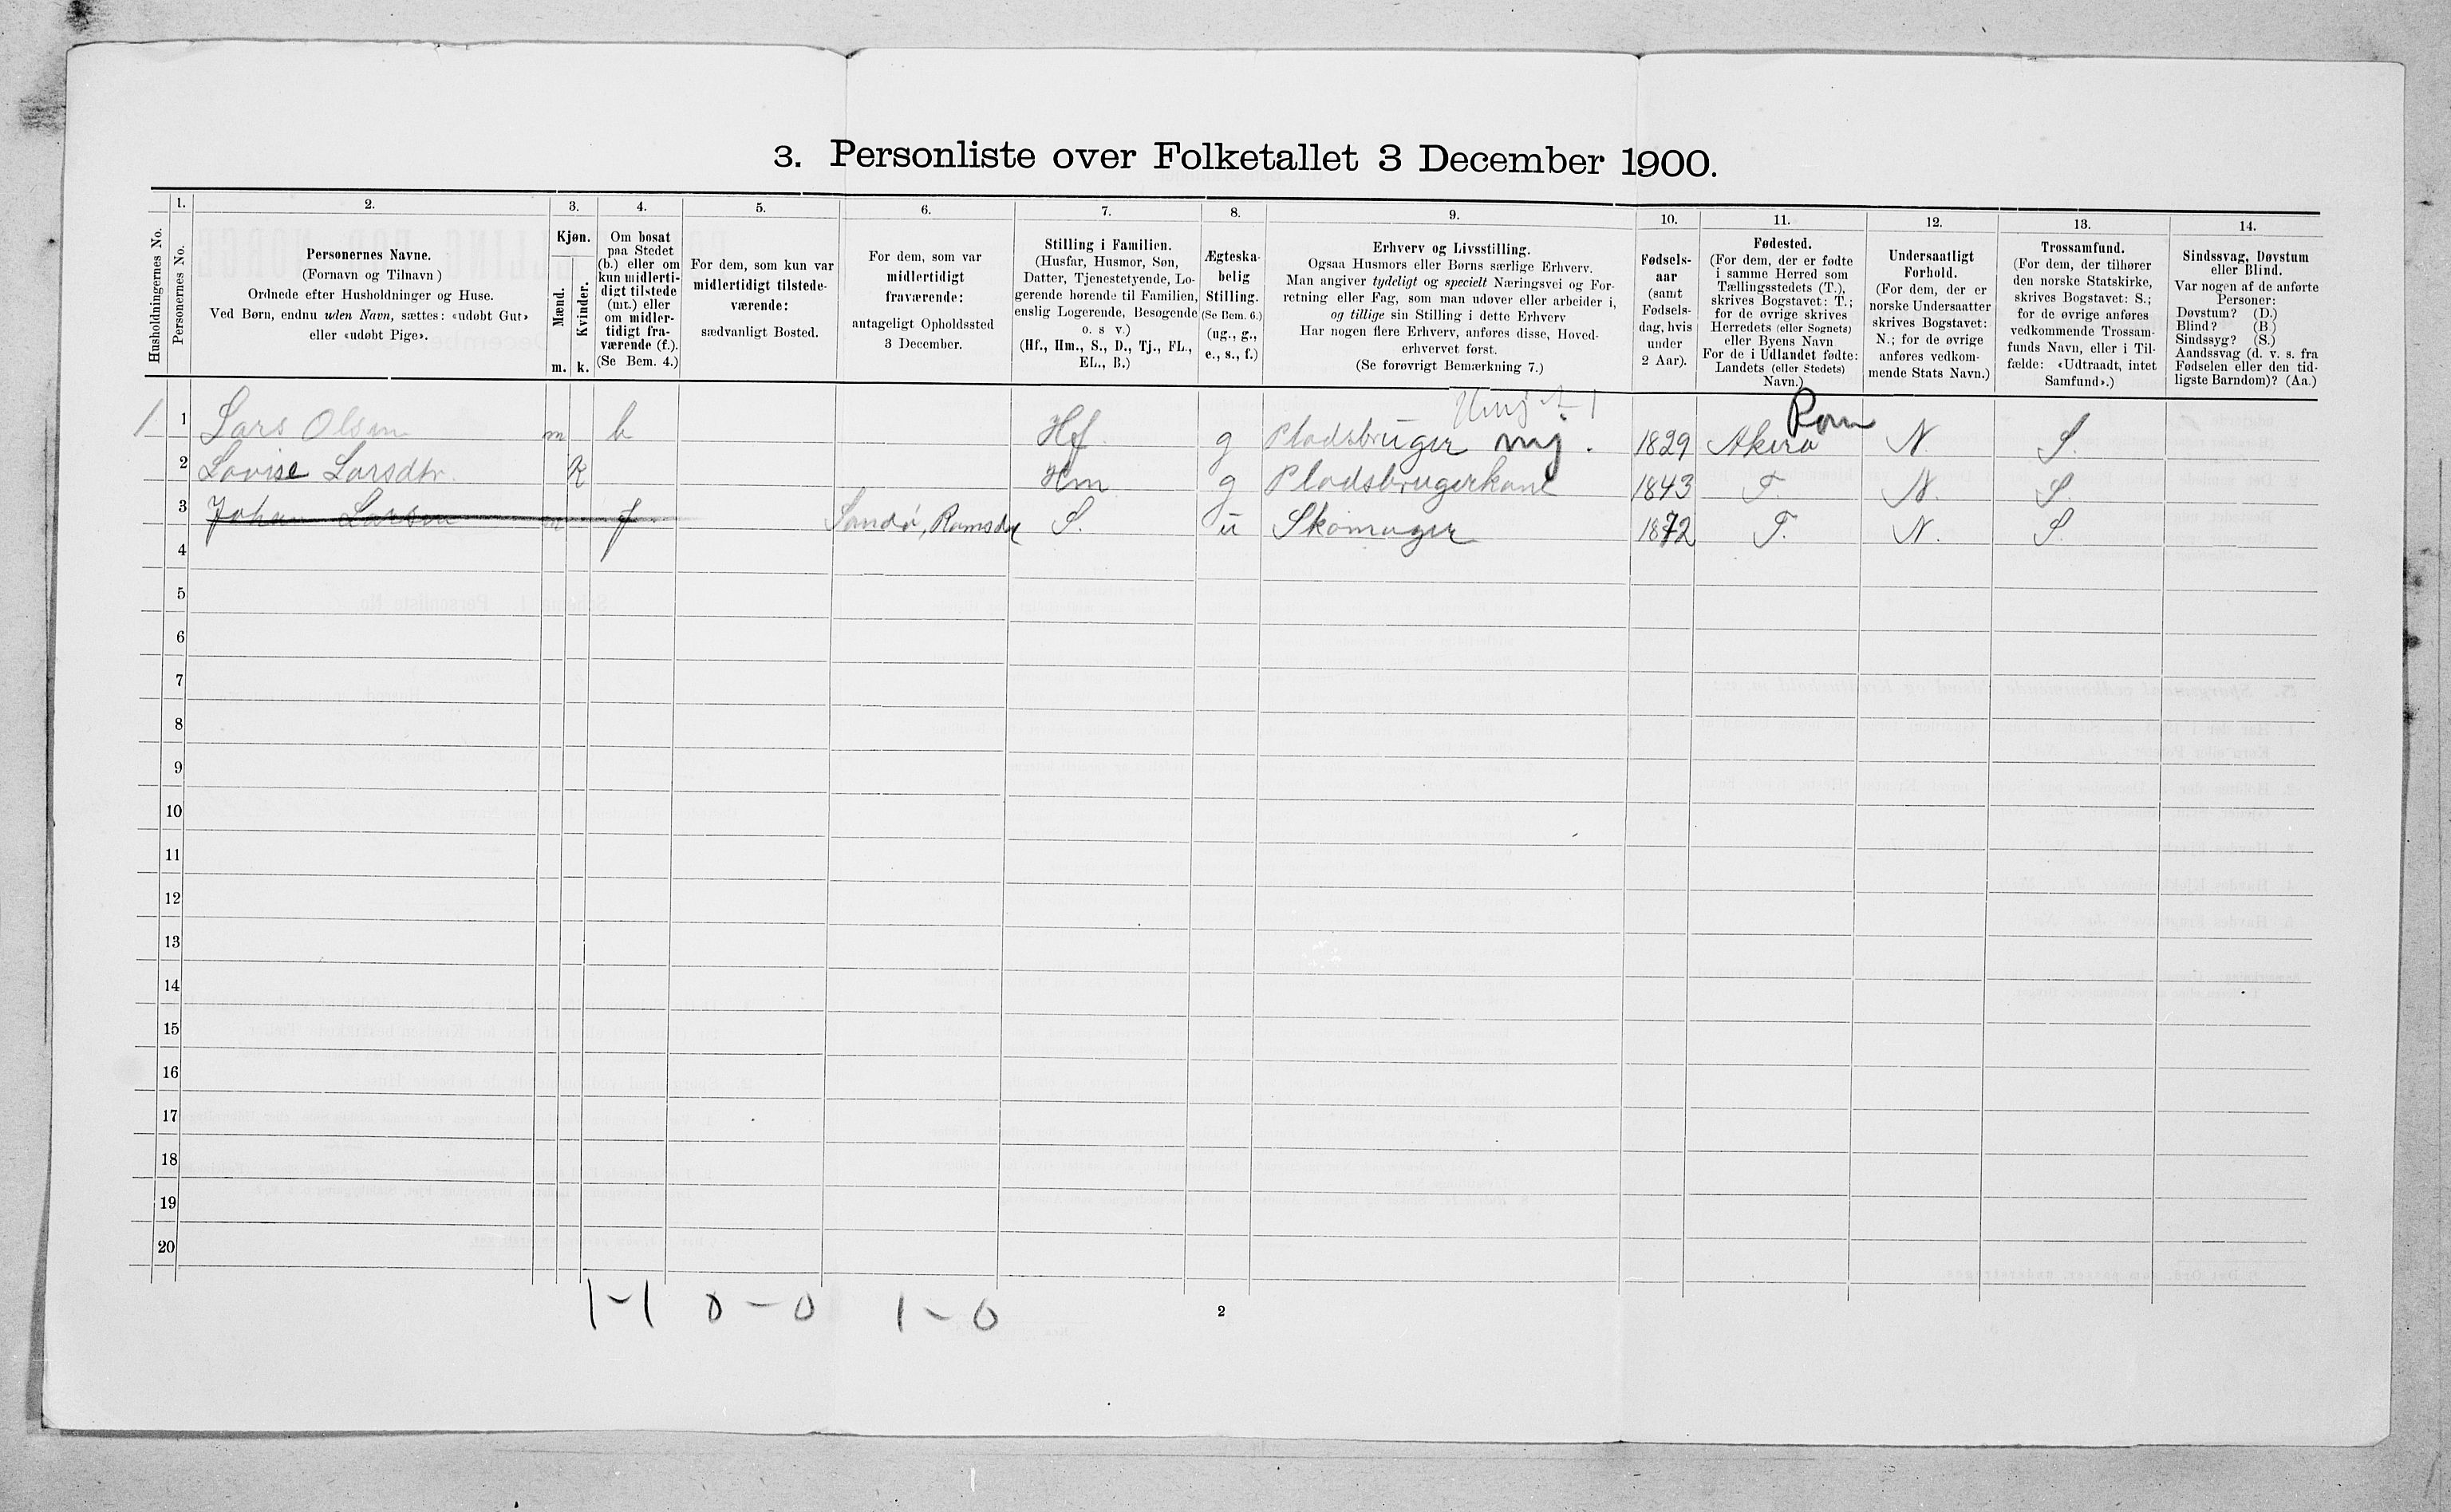 3. Personliste over Folketallet 3 December 1900.
Husholdningernes No.
1.
Personernes No.
2.
Personernes Navne.
(Fornavn og Tilnavn)
Ordnede efter Husholdninger og Huse.
Ved Børn, endnu uden Navn, sættes: «udøbt Gut»
eller «udøbt Pige».
3.
Kjøn.
Mænd.
Kvinder.
m. k.
4.
Om bosat
paa Stedet
(b.) eller om
kun midlerti-
digt tilstede
(mt.) eller
om midler-
tidigt fra-
værende (f.).
(Se Bem. 4.)
5.
For dem, som kun var
midlertidigt tilstede-
værende:
sædvanligt Bosted.
6.
For dem, som var
midlertidigt
fraværende:
antageligt Opholdssted
3 December.
7.
Stilling i Familien.
(Husfar, Husmor, Søn,
Datter, Tjenestetyende, Lo-
gerende hørende til Familien,
enslig Logerende, Besøgende
o. s v.)
(Hf., Hm., S., D., Tj., FL.,
EL., B.)
8.
Ægteska-
belig
Stilling.
(Se Bem. 6.)
(ug., g.,
e., s., f.)
9.
Erhverv og Livsstilling.
Ogsaa Husmors eller Børns særlige Erhverv.
Man angiver tydeligt og specielt Næringsvei og For-
retning eller Fag, som man udøver eller arbeider i,
og tillige sin Stilling i dette Erhverv
Har nogen flere Erhverv, anføres disse, Hoved-
erhvervet først.
(Se forøvrigt Bemærkning 7.)
10.
Fødsels-
aar
(samt
Fødsels-
dag, hvis
under
2 Aar).
11.
Fødested.
(For dem, der er fødte
i samme Herred som
Tællingsstedets (T.),
skrives Bogstavet: T.;
for de øvrige skrives
Herredets (eller Sognets)
eller Byens Navn
For de i Udlandet fødte:
Landets (eller Stedets)
Navn.)
12.
Undersaatligt
Forhold.
(For dem, der er
norske Undersaatter
skrives Bogstavet:
N.; for de øvrige
anføres vedkom-
mende Stats Navn.)
13.
Trossamfund.
(For dem, der tilhører
den norske Statskirke,
skrives Bogstavet: S.;
for de øvrige anføres
vedkommende Trossam-
funds Navn, eller i Til-
fælde: «Udtraadt, intet
Samfund».)
14.
Sindssvag, Døvstum
eller Blind.
Var nogen af de anførte
Personer:
Døvstum? (D.)
Blind? (B)
Sindssyg? (S.)
Aandssvag (d. v. s. fra
Fødselen eller den tid-
ligste Barndom)? (Aa.)
Rom
1 1 Lars Olsen m b Hf. g Pladsbruger mj. 1829 Akerø N. S.
2 Lovise Larsdtr. k Hm g Pladsbrugerkone 1843 T. N. S.
3 Johan Larsen m f Sandø, Romsdal S. u Skomager 1872 T. N. S.
4
5
6
7
8
9
10
11
12
13
14
15
16
17
18
19
20
1-1 0-0 1-0
2